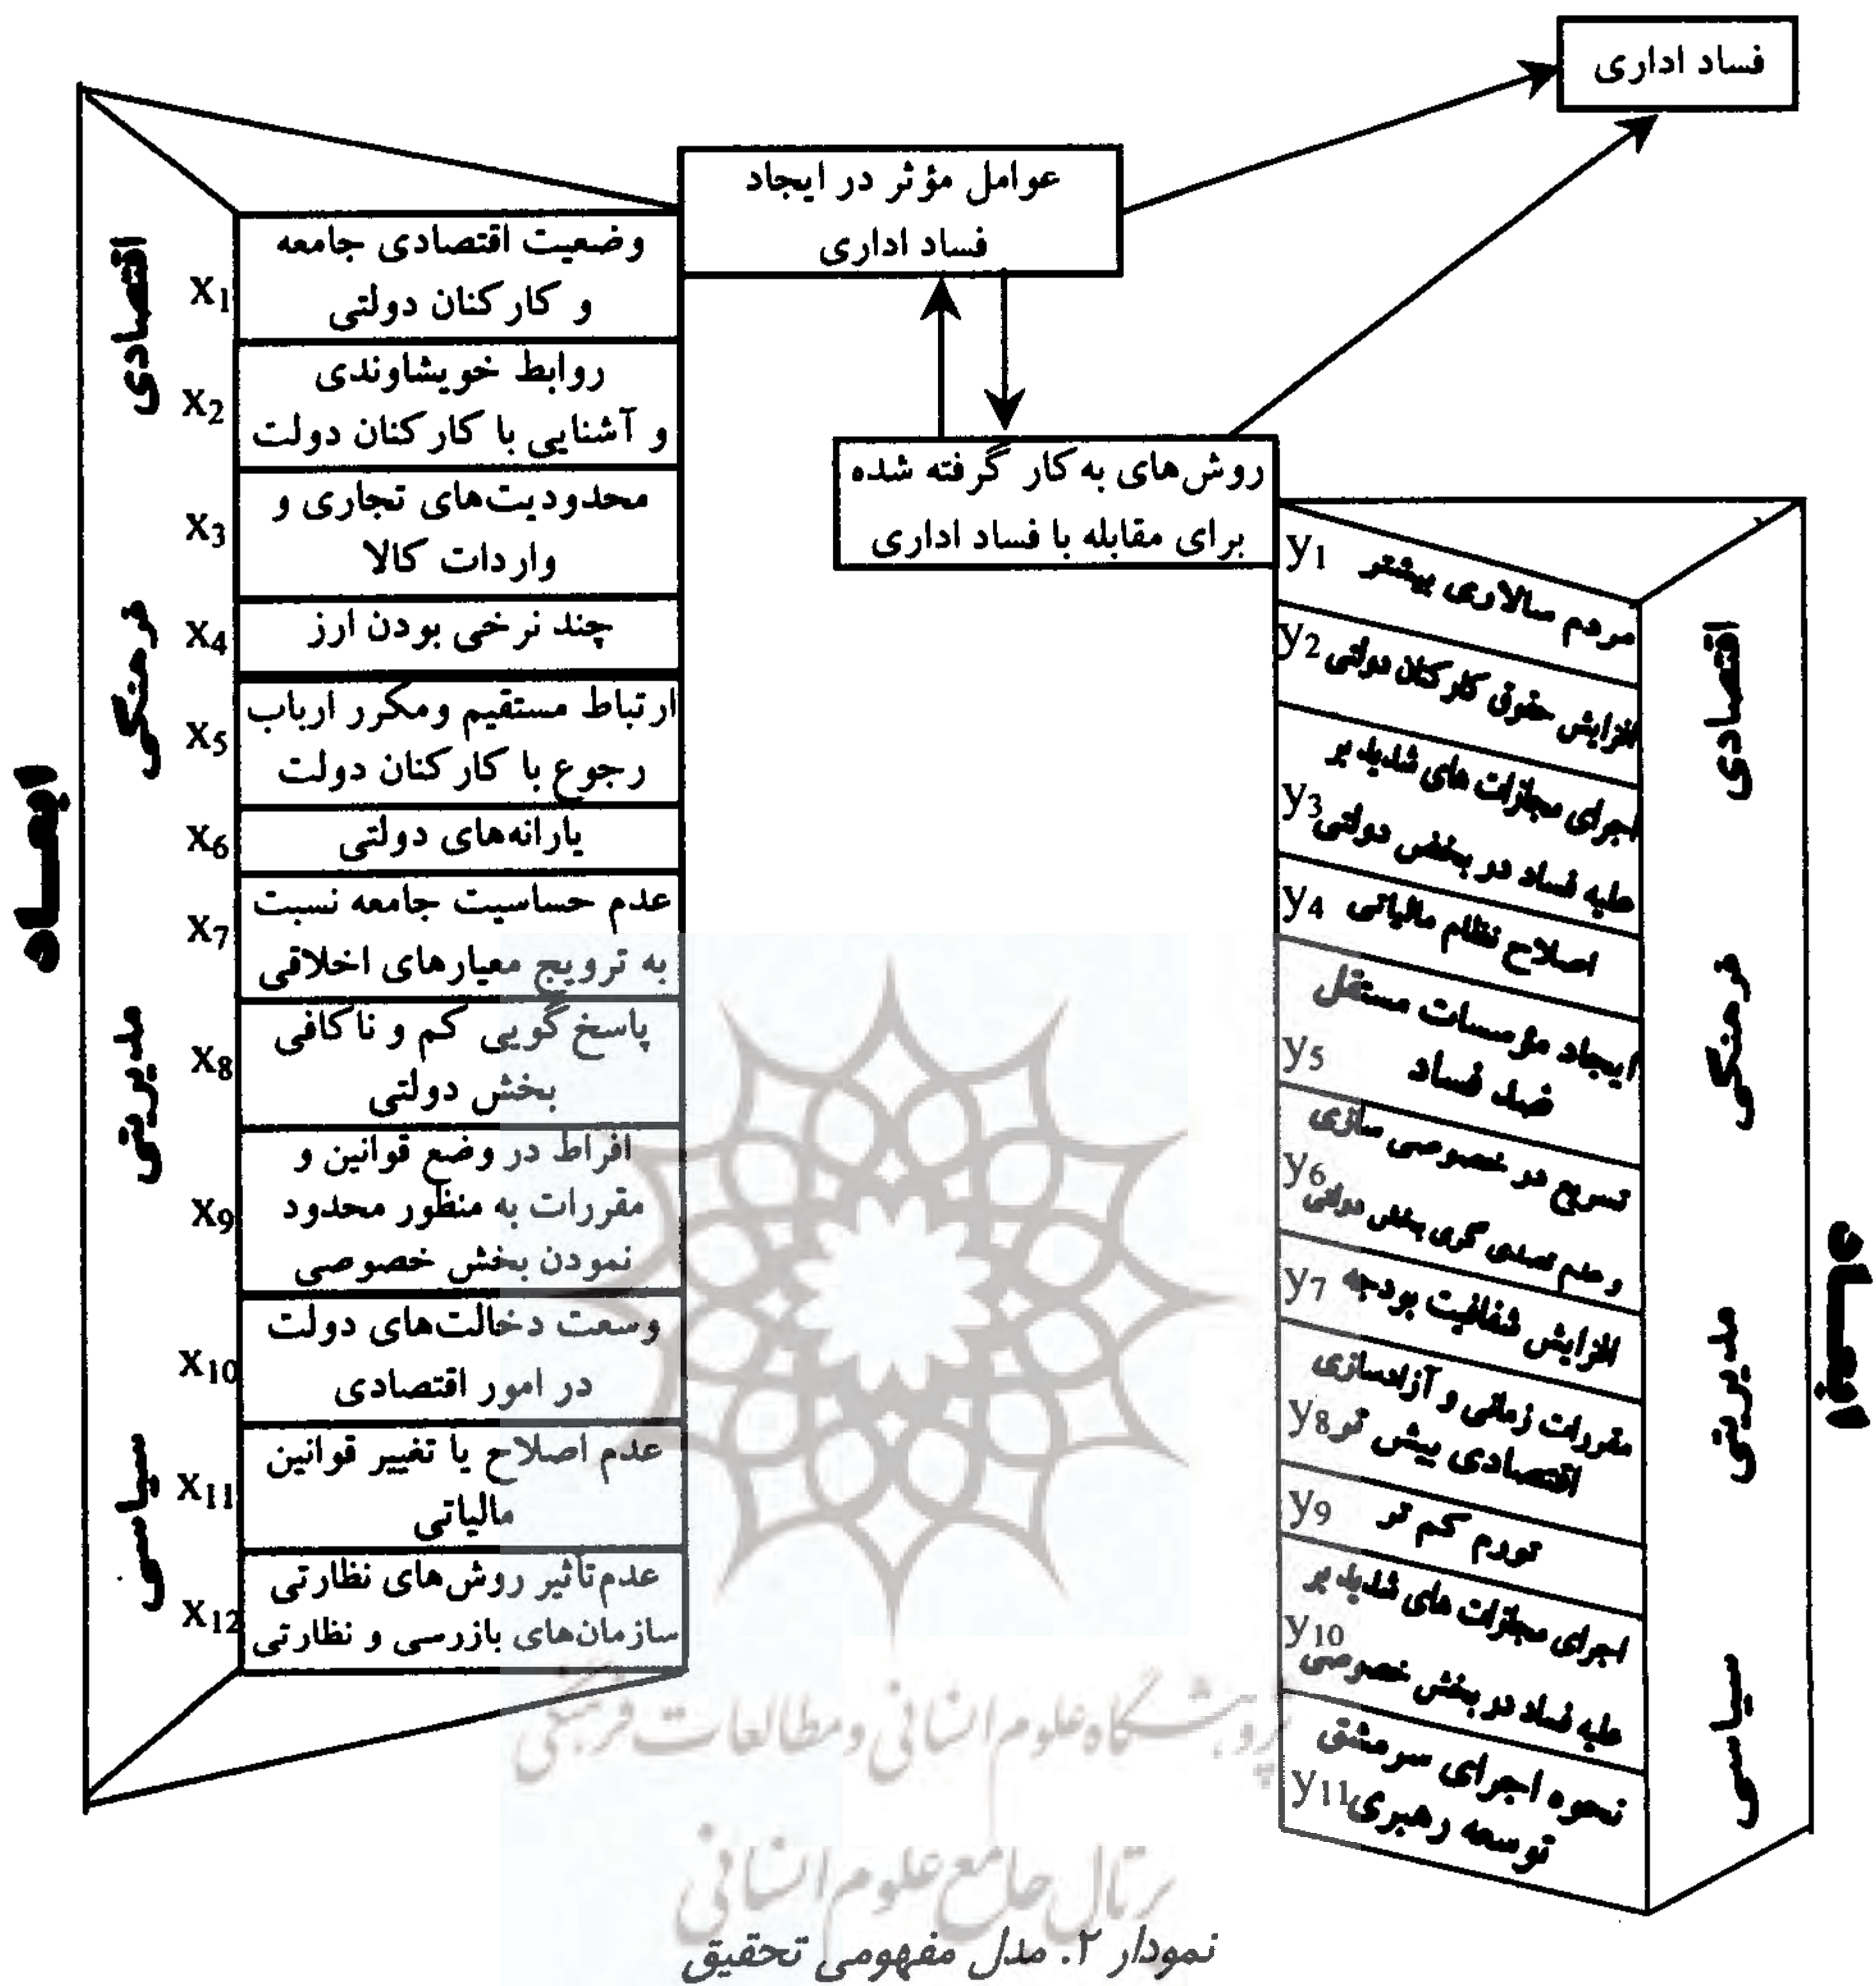 فساد اداری
عوامل مؤثر در ایجاد
فساد اداری
روش‌های به‌کار گرفته شده
برای مقابله با فساد اداری
ابعـــاد
اقتصادی
فرهنگی
مدیریتی
سیاسی
x1
وضعیت اقتصادی جامعه
و کارکنان دولتی
x2
روابط خویشاوندی
و آشنایی با کارکنان دولت
x3
محدودیت‌های تجاری و
واردات کالا
x4
چند نرخی بودن ارز
x5
ارتباط مستقیم ومکرر ارباب
رجوع با کارکنان دولت
x6
یارانه‌های دولتی
x7
عدم حساسیت جامعه نسبت
به ترویج معیارهای اخلاقی
x8
پاسخ‌گویی کم و ناکافی
بخش دولتی
x9
افراط در وضع قوانین و
مقررات به منظور محدود
نمودن بخش خصوصی
x10
وسعت دخالت‌های دولت
در امور اقتصادی
x11
عدم اصلاح یا تغییر قوانین
مالیاتی
x12
عدم‌تأثیر روش‌های نظارتی
سازمان‌های بازرسی و نظارتی
y1
مردم سالاری بیشتر
y2
افزایش حقوق کارکنان دولتی
y3
اجرای مجازات های شدید بر
علیه فساد در بخش دولتی
y4
اصلاح نظام مالیاتی
y5
ایجاد مؤسسات مستقل
ضد فساد
y6
تسریع در خصوصی سازی
و عدم تصدی گری بخش دولتی
y7
افزایش شفافیت بودجه
y8
مقررات زمانی و آزادسازی
اقتصادی بیش تر
y9
تورم کم تر
y10
اجرای مجازات های شدید بر
علیه فساد در بخش خصوصی
y11
نحوه اجرای سرمشق
توسعه رهبری
اقتصادی
فرهنگی
مدیریتی
سیاسی
پژوهشگاه علوم انسانی و مطالعات فرهنگی
پرتال جامع علوم انسانی
نمودار ۲. مدل مفهومی تحقیق